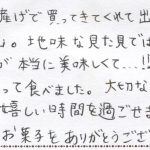 産げで買ってきてくれて出
。地味な見た目では
が本当に美味しくて...!!
って食べました。大切な
嬉しい時間を過ごせま
お菓子をありがとうござ